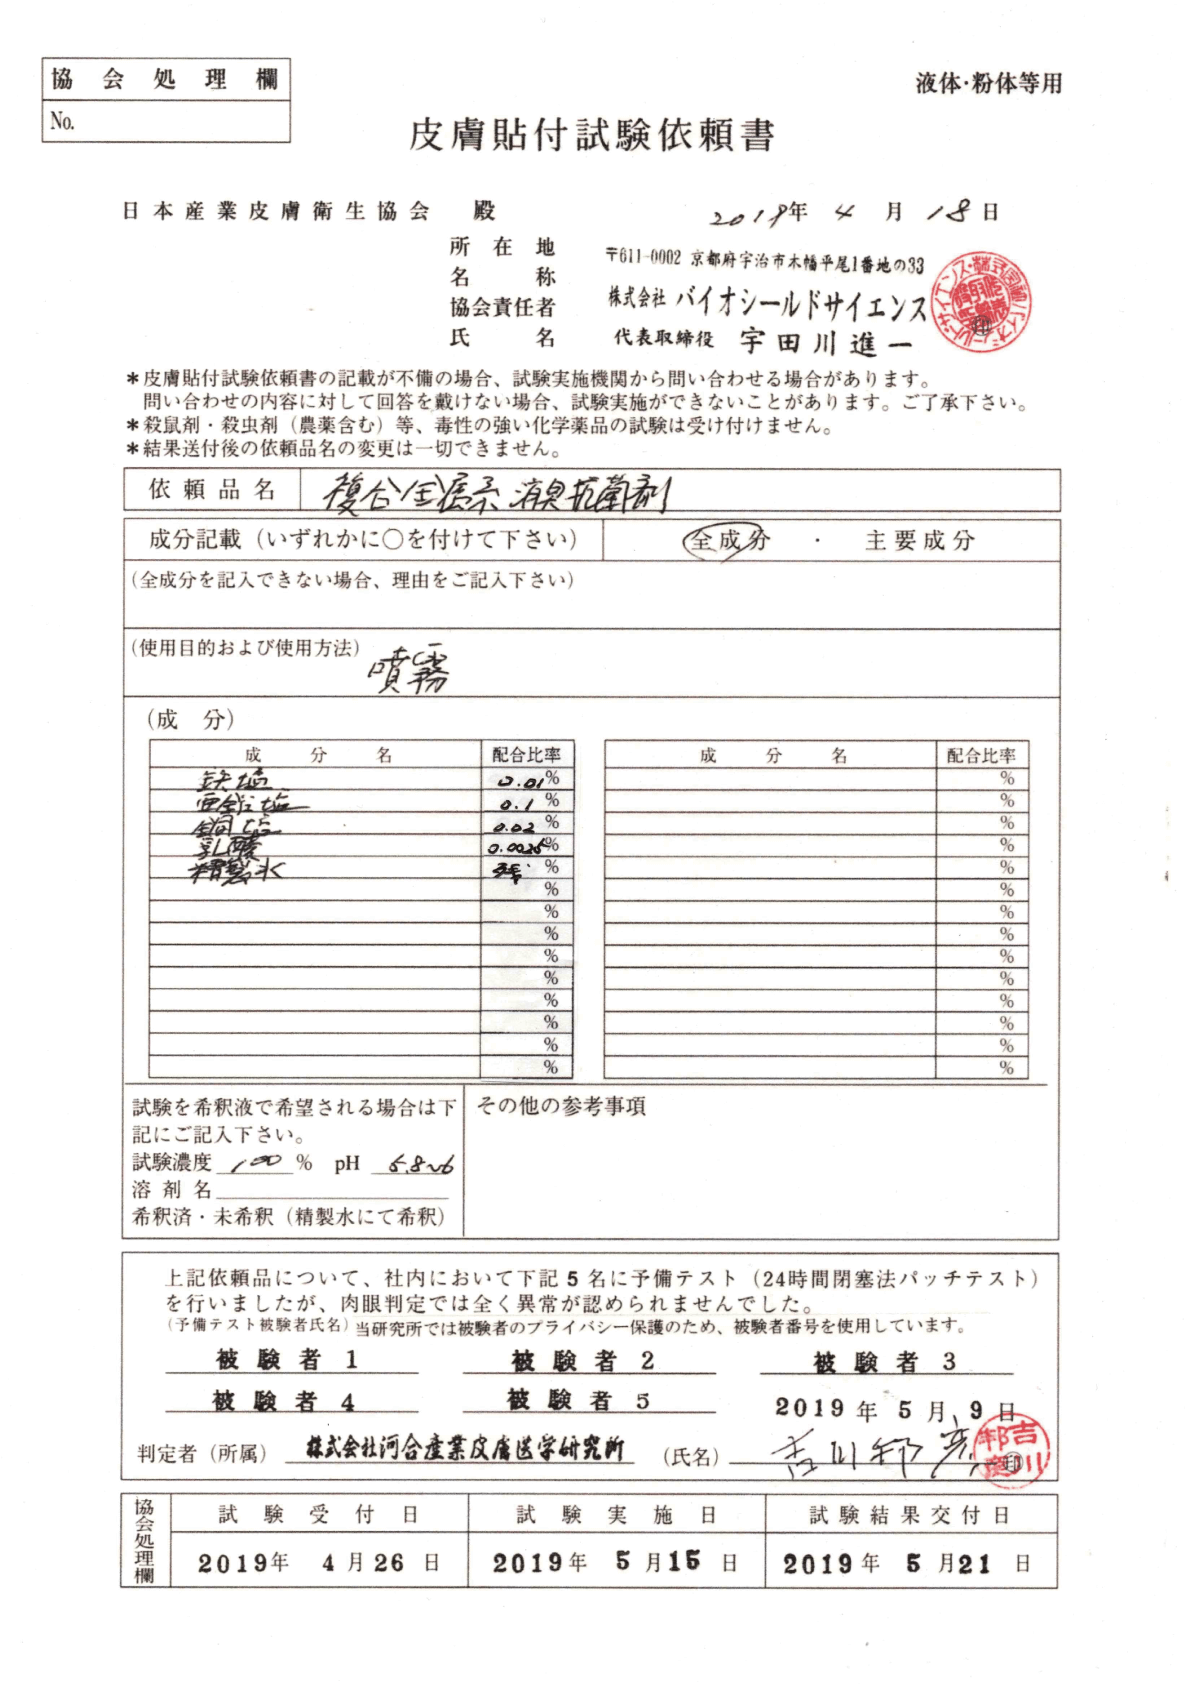 協会処理欄
No.
液体・粉体等用
皮膚貼付試験依頼書
日本産業皮膚衛生協会 殿
2019年 4月 18日
所在地 〒611-0002 京都府宇治市木幡平尾1番地の33
名称 株式会社 バイオシールドサイエンス
協会責任者
氏名 代表取締役 宇田川進一
印
*皮膚貼付試験依頼書の記載が不備の場合、試験実施機関から問い合わせる場合があります。
問い合わせの内容に対して回答を戴けない場合、試験実施ができないことがあります。ご了承下さい。
*殺鼠剤・殺虫剤(農薬含む)等、毒性の強い化学薬品の試験は受け付けません。
*結果送付後の依頼品名の変更は一切できません。
依頼品名 複合金属系消臭抗菌剤
成分記載(いずれかに○を付けて下さい) 全成分 ・ 主要成分
(全成分を記入できない場合、理由をご記入下さい)
(使用目的および使用方法) 噴霧
(成 分)
成分名 配合比率 成分名 配合比率
鉄塩 0.01% %
亜鉛塩 0.1% %
銅塩 0.02% %
乳酸 0.0025% %
精製水 残% %
% %
% %
% %
% %
% %
% %
% %
% %
% %
試験を希釈液で希望される場合は下
記にご記入下さい。
試験濃度 100 % pH 5.8~6
溶剤名
希釈済・未希釈(精製水にて希釈)
その他の参考事項
上記依頼品について、社内において下記5名に予備テスト(24時間閉塞法パッチテスト)
を行いましたが、肉眼判定では全く異常が認められませんでした。
(予備テスト被験者氏名)当研究所では被験者のプライバシー保護のため、被験者番号を使用しています。
被験者1 被験者2 被験者3
被験者4 被験者5 2019年5月9日
判定者(所属) 株式会社河合産業皮膚医学研究所 (氏名) 吉川邦彦
吉川邦彦
印
協会処理欄
試験受付日 試験実施日 試験結果交付日
2019年 4月26日 2019年 5月15日 2019年 5月21日